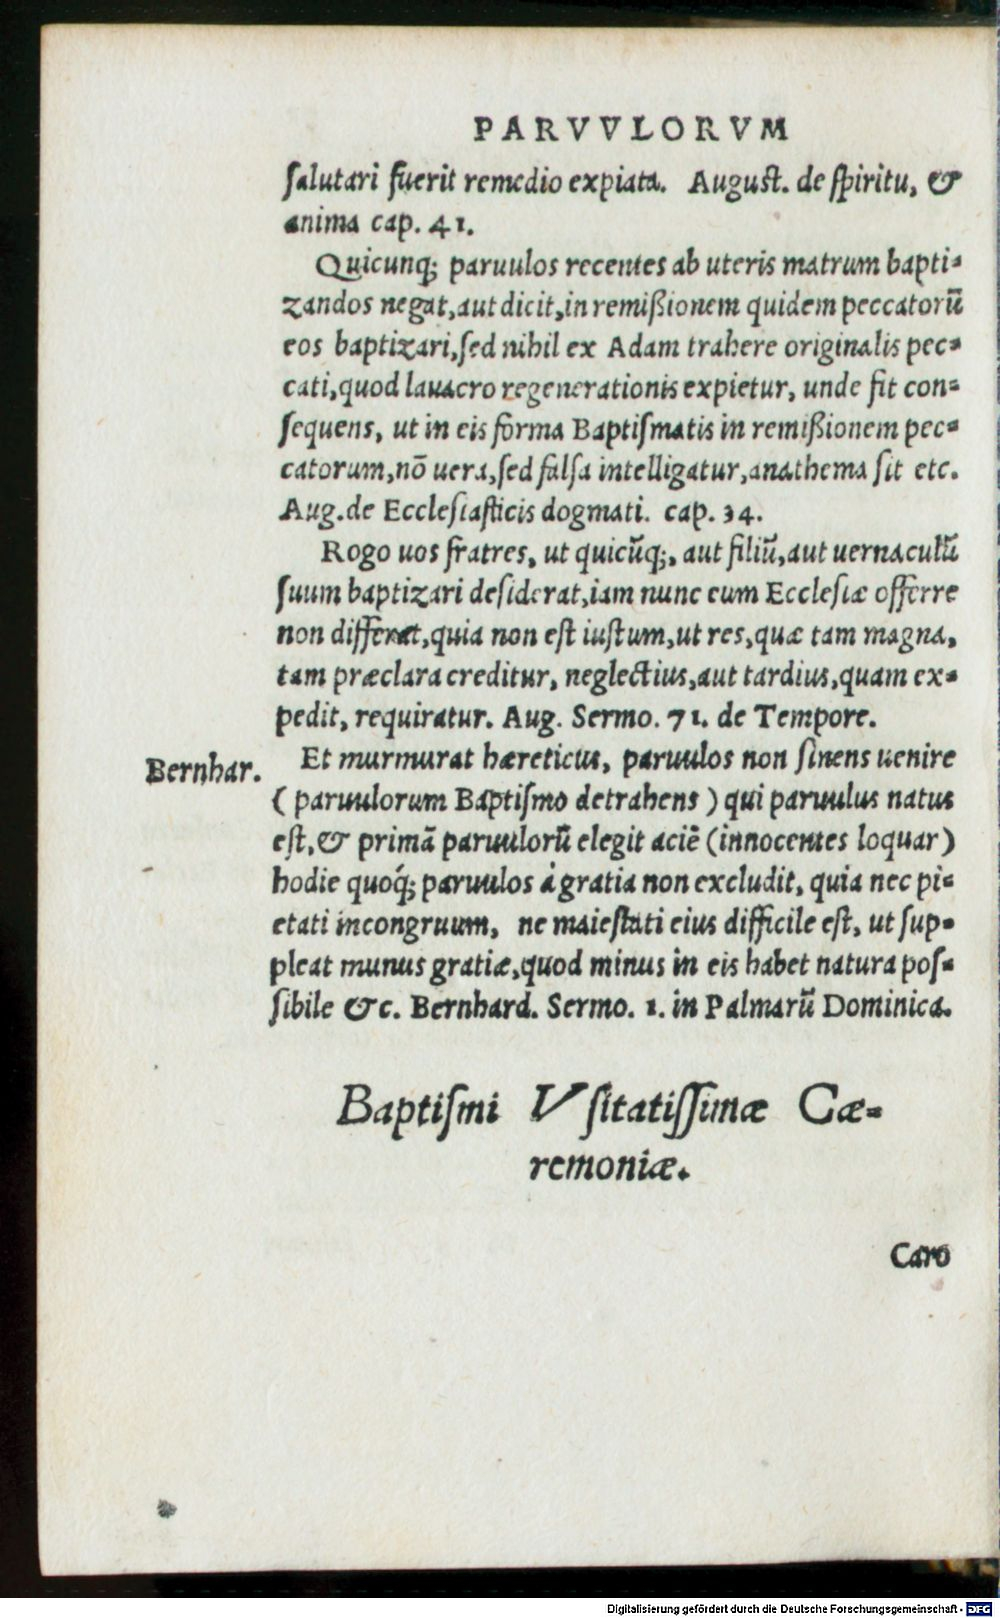 PARVVLORVM
ſalutari fuerit remedio expiata. Auguſt. de ſpiritu, &
anima cap. 41.
Quicunq; paruulos recentes ab uteris matrum bapti-
zandos negat, aut dicit, in remißionem quidem peccatorũ
eos baptizari, ſed nihil ex Adam trahere originalis pec-
cati, quod lauacro regenerationis expietur, unde fit con-
ſequens, ut in eis forma Baptiſmatis in remißionem pec-
catorum, nõ uera, ſed falſa intelligatur, anathema ſit etc.
Aug. de Eccleſiaſticis dogmati. cap. 34.
Rogo uos fratres, ut quicũq;, aut filiũ, aut uernaculũ
ſuum baptizari deſiderat, iam nunc eum Eccleſiæ offerre
non differat, quia non eſt iuſtum, ut res, quæ tam magna,
tam præclara creditur, neglectius, aut tardius, quam ex-
pedit, requiratur. Aug. Sermo. 71. de Tempore.
Bernhar.
Et murmurat hæreticus, paruulos non ſinens uenire
( paruulorum Baptiſmo detrahens ) qui paruulus natus
eſt, & primã paruulorũ elegit aciẽ (innocentes loquar)
hodie quoq́; paruulos à gratia non excludit, quia nec pi-
etati incongruum, ne maieſtati eius difficile eſt, ut ſup-
pleat munus gratiæ, quod minus in eis habet natura poſ-
ſibile &c. Bernhard. Sermo. 1. in Palmarũ Dominica.
Baptiſmi Vſitatiſſimæ Cæ-
remoniæ.
Caro
Digitalisierung gefördert durch die Deutsche Forschungsgemeinschaft - DFG